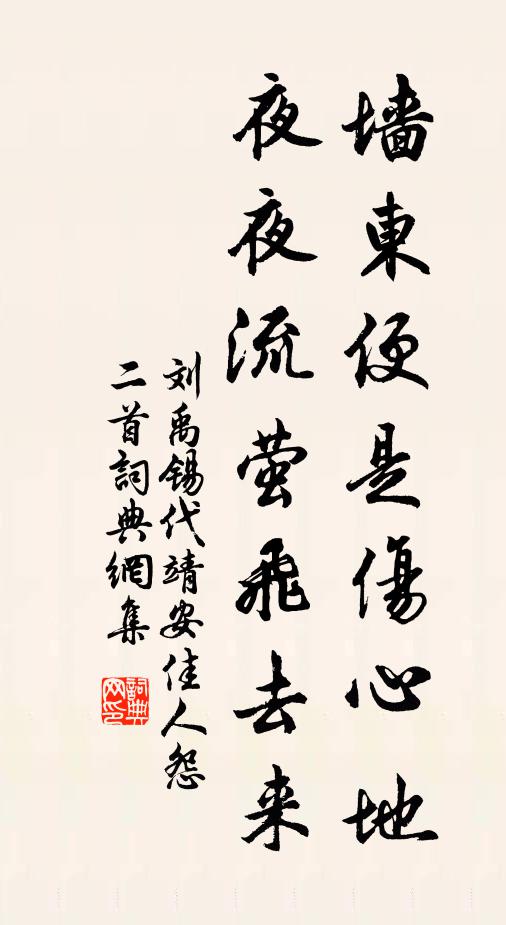 墙東便是傷心地
夜夜流萤飛去来
刘禹锡代靖安佳人怨
二首詞典網集
詞典
网印